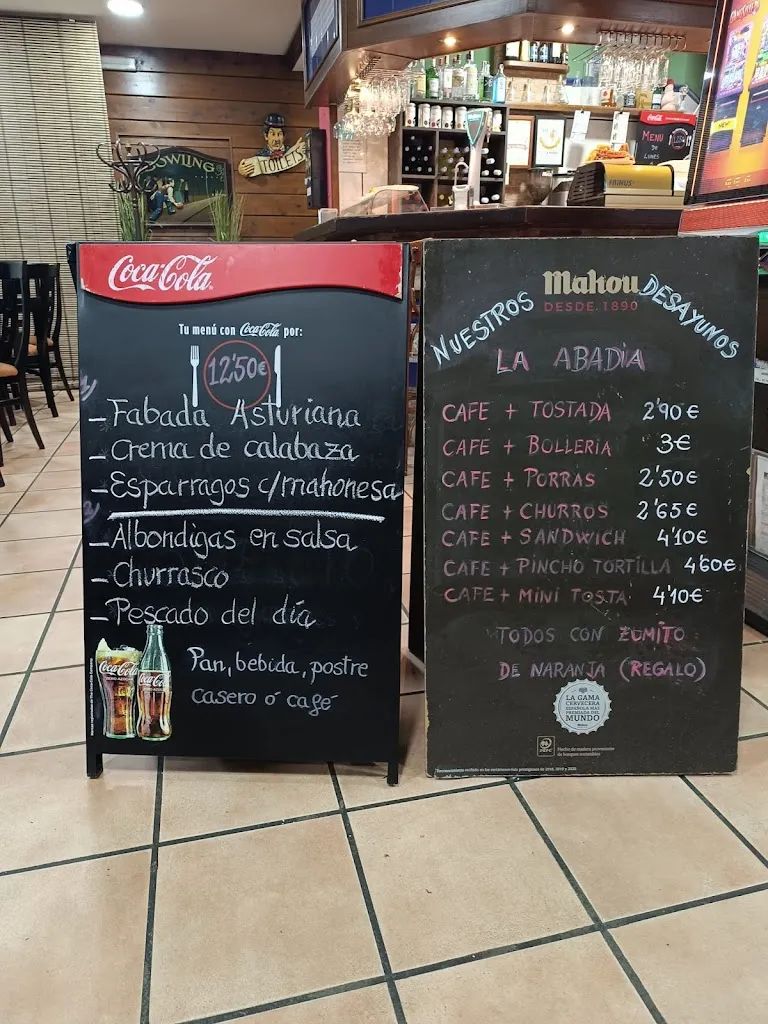 BOWLING
TOILETS
Coca-Cola
MENU
DE
LUNES
Coca-Cola
Tu menú con Coca-Cola por:
12'50€
- Fabada Asturiana
- Crema de calabaza
- Esparragos c/mahonesa
- Albondigas en salsa
- Churrasco
- Pescado del día
Pan, bebida, postre
casero ó café
Coca-Cola
Coca-Cola
Mahou
DESDE 1890
NUESTROS DESAYUNOS
LA ABADIA
CAFE + TOSTADA 2'90€
CAFE + BOLLERIA 3€
CAFE + PORRAS 2'50€
CAFE + CHURROS 2'65€
CAFE + SANDWICH 4'10€
CAFE + PINCHO TORTILLA 4'60€
CAFE + MINI TOSTA 4'10€
TODOS CON ZUMITO
DE NARANJA (REGALO)
LA GAMA
CERVECERA
ESPAÑOLA MÁS
PREMIADA DEL
MUNDO